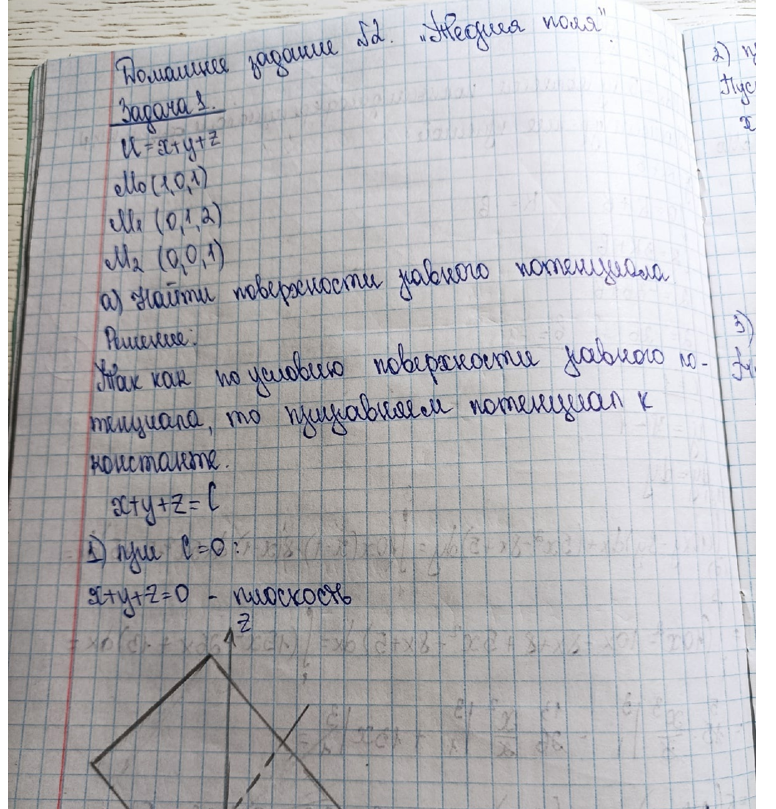 Домашнее задание №2. "Теория поля"
Задача 1.
U=x+y+z
M₀(1,0,1)
M₁ (0,1,2)
M₂ (0,0,1)
а) Найти поверхности равного потенциала
Решение:
Так как по условию поверхности равного по-
тенциала, то приравняем потенциал к
константе.
x+y+z=C
1) при C=0:
x+y+z=0 - плоскость
z
2) п
Пус
x
3)